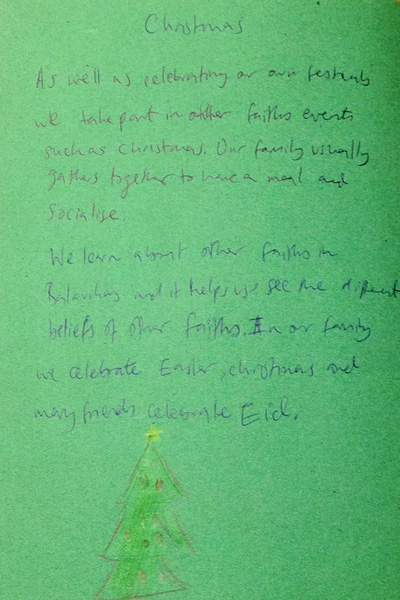 Christmas
As well as celebrating or own festivals
we take part in other faiths events
such as Christmas. Our family usually
gathers together to have a meal and
Socialise.
We learn about other faiths in
Balavihar and it helps us see the different
beliefs of other faiths. In or family
we celebrate Easter, christmas and
many friends celebrate Eid.